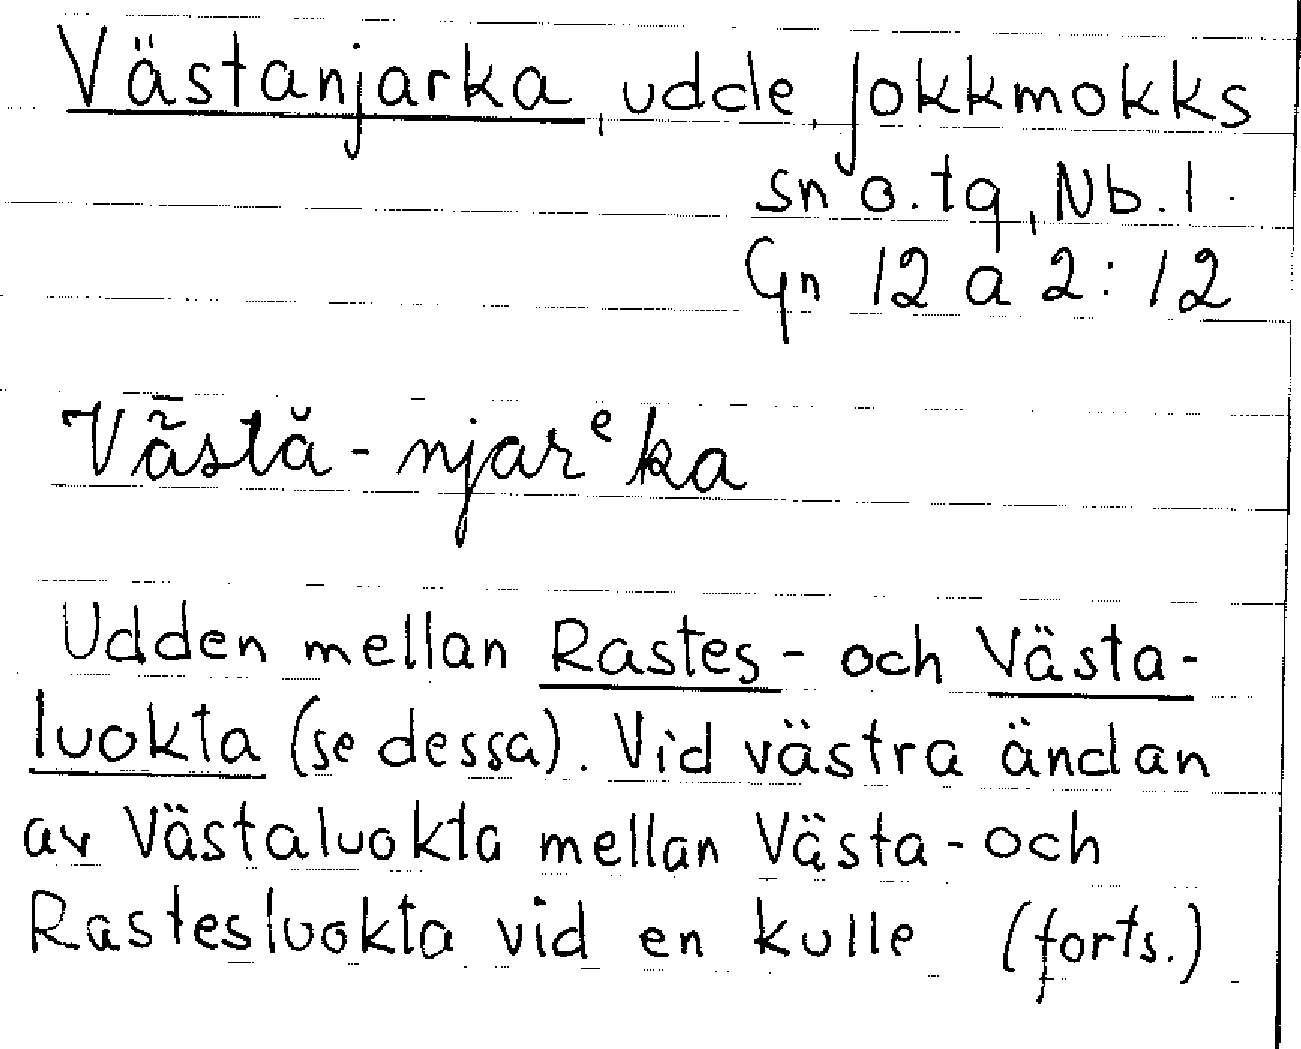 Västanjarka, udde, Jokkmokks
sn o. tg, Nb. l.
Gn 12 a 2:12
Vä̃stă-njarᵉka
Udden mellan Rastes- och Västa-
luokta (se dessa). Vid västra ändan
av Västaluokta mellan Västa- och
Rastesluokta vid en kulle (forts.)